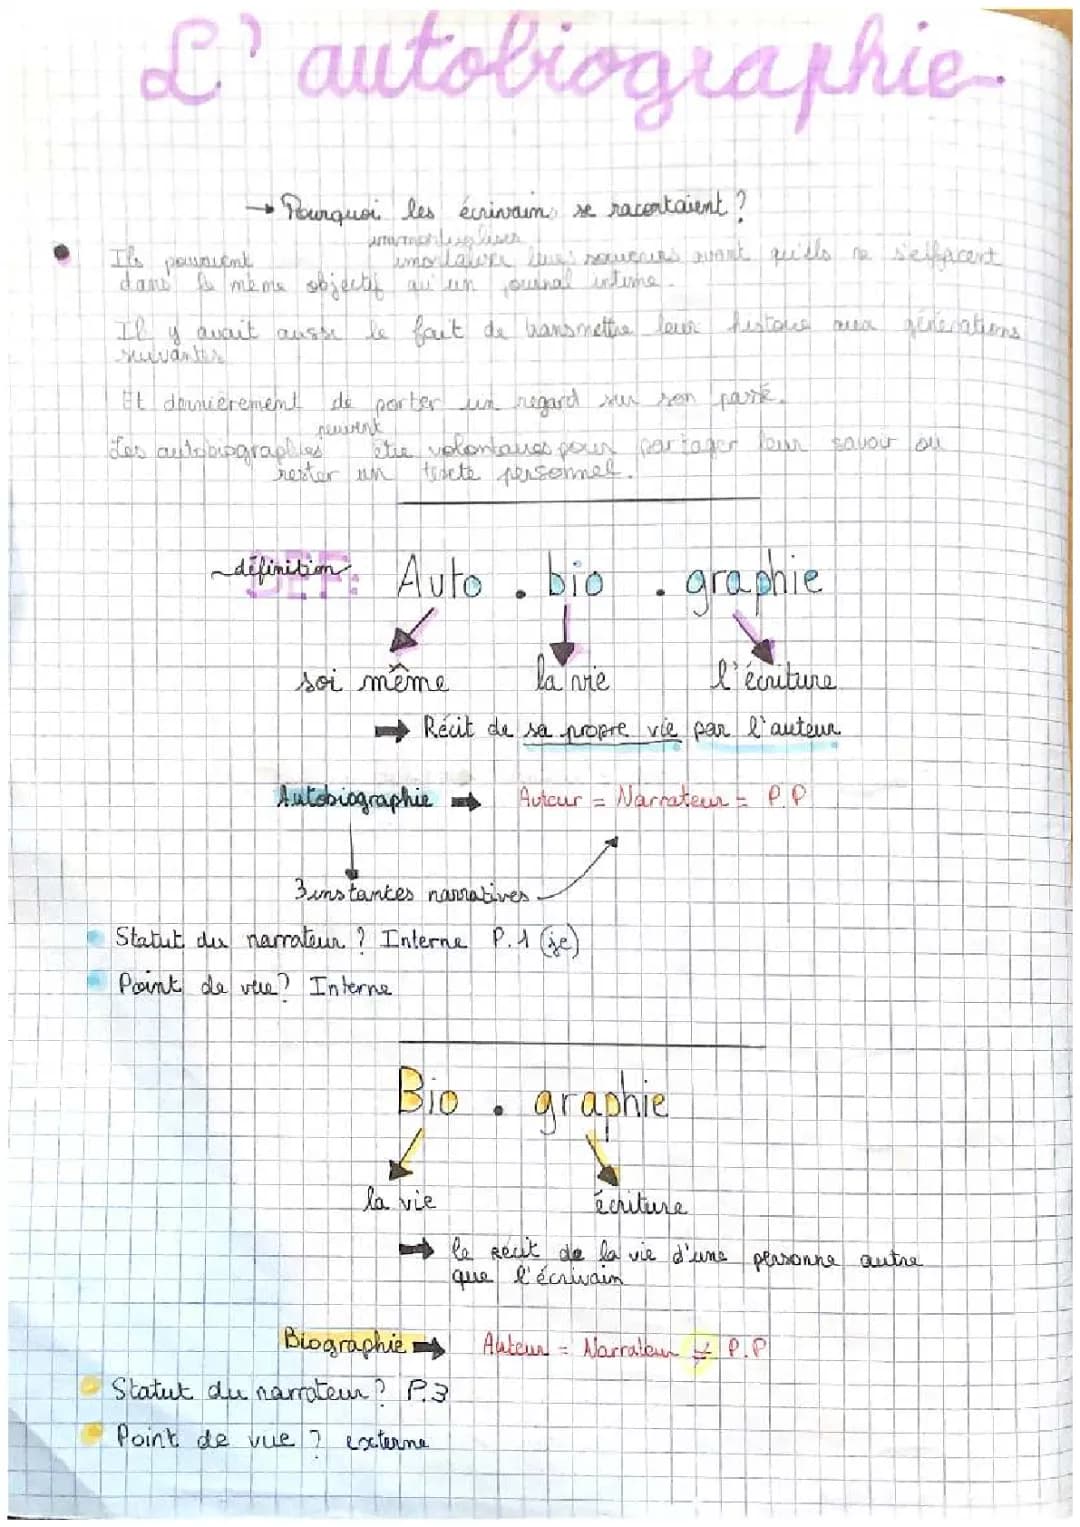 L'autobiographie
→ Pourquoi les écrivains se racontaient ?
immortaliser
Ils pouvaient leurs souvenirs avant qu'ils ne s'effacent
dans le même objectif qu'un journal intime.
Il y avait aussi le fait de transmettre leur histoire aux générations
suivantes
Et dernièrement de porter un regard sur son passé.
peuvent
Les autobiographies être volontaires pour partager leur savoir ou
rester un texte personnel.
définition DEF: Auto . bio . graphie
soi même la vie l'écriture
➡ Récit de sa propre vie par l'auteur
Autobiographie ➡ Auteur = Narrateur = P.P
3 instances narratives
Statut du narrateur ? Interne P.1 (je)
Point de vue ? Interne
Bio . graphie
la vie écriture
➡ le récit de la vie d'une personne autre
que l'écrivain
Biographie ➡ Auteur = Narrateur ≠ P.P
Statut du narrateur ? P.3
Point de vue ? externe